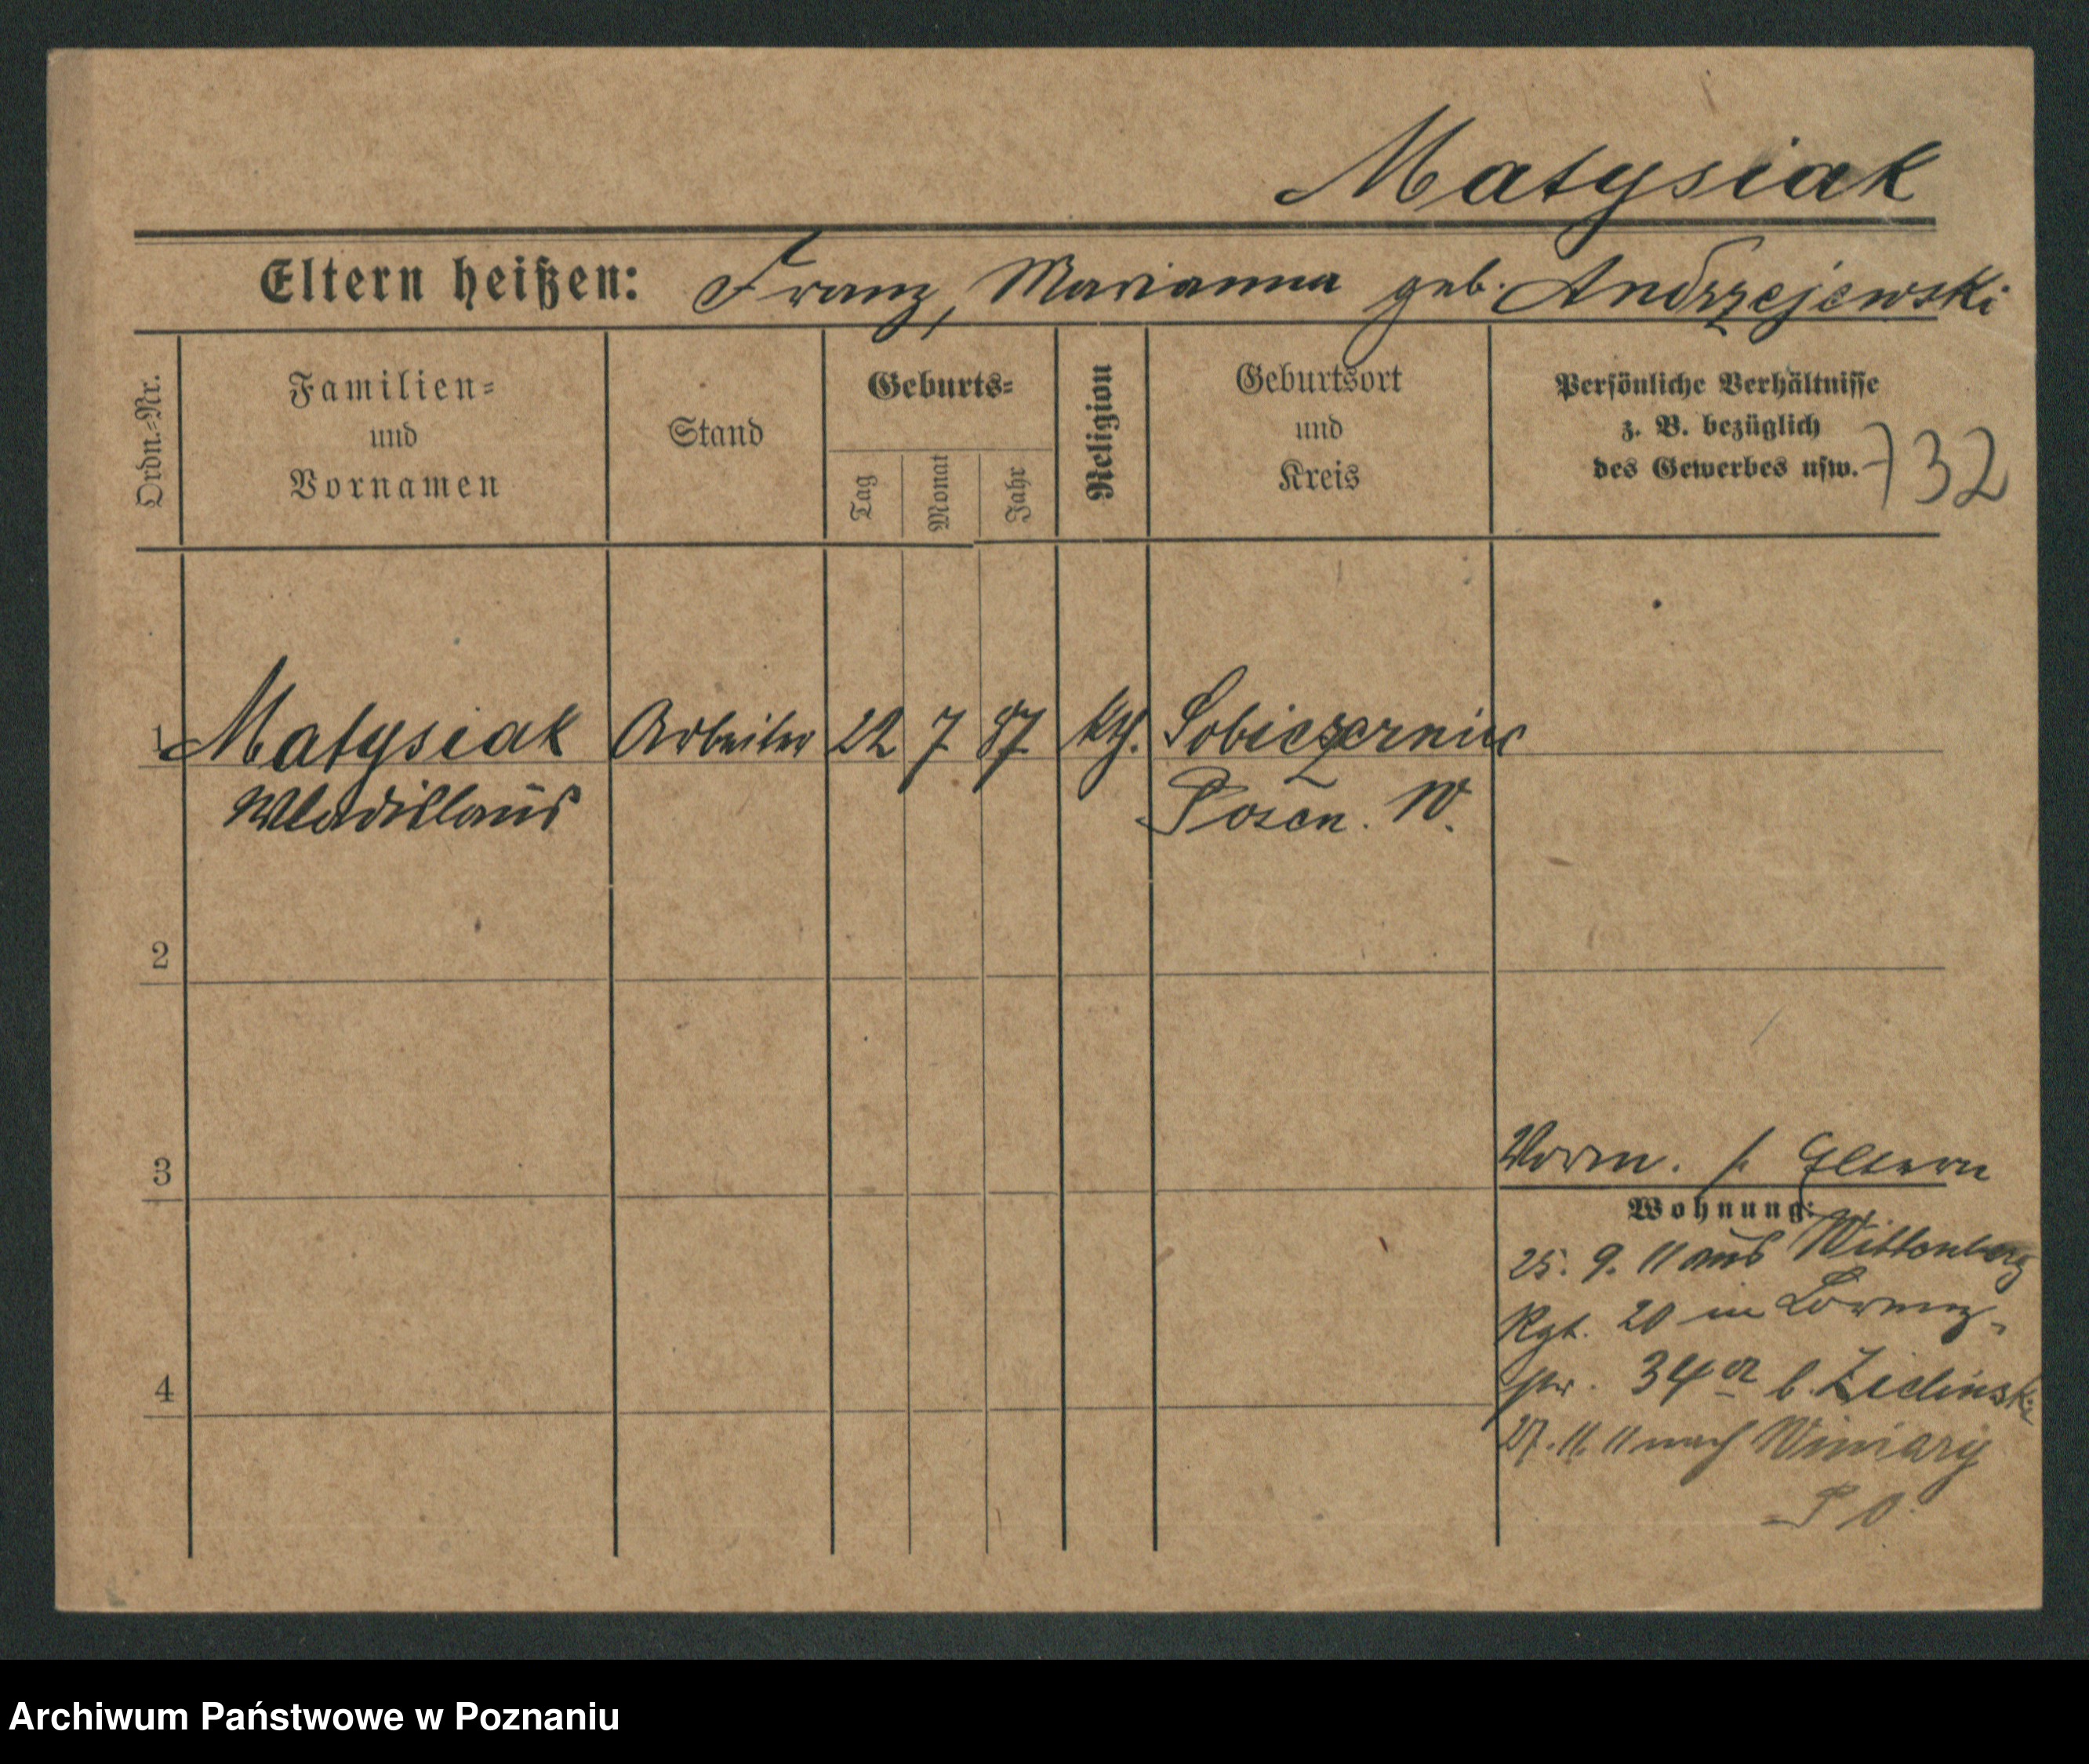 Matysiak
Eltern heißen: Franz, Marianna geb. Andrzejewski
Ordn.-Nr.
Familien-
und
Vornamen
Stand
Geburts-
Tag
Monat
Jahr
Religion
Geburtsort
und
Kreis
Persönliche Verhältnisse
z. B. bezüglich
des Gewerbes usw.
732
1 Matysiak Arbeiter 22 7 87 kth. Sobiczernice
Wladislaus Posen. W.
2
3
Vorm. s. Eltern
Wohnung:
25. 9. 11 aus Wittenberg
Rgt. 20 in Lorenz-
str. 34a b. Zielinski
4
27. 11. 11 nach Winiary
P O.